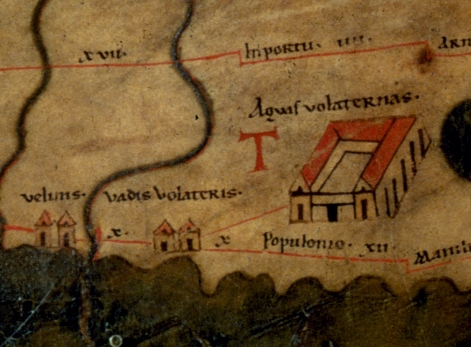 XVII. In portu. IIII. Arn
Aquis volaternas.
T
velinis. vadis volateris.
X. X Populonio. XII. Manli